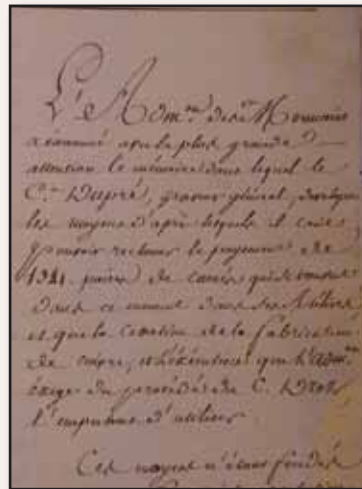 L'Adm.on des Monnaies
a examiné avec la plus grande
attention le mémoire dans lequel le
C.en Dupré, graveur général, développe
les moyens d'après lesquels il croit
pouvoir réclamer le payement de
1341. paires de carrés qui se trouvent
dans ce moment dans ses atteliers
et que la cessation de la fabrication
de cuivre, et l'exécution que l'adm.on
exige du procédé du C. Droz,
l'empêchent d'utiliser.
Ces moyens n'étant fondés